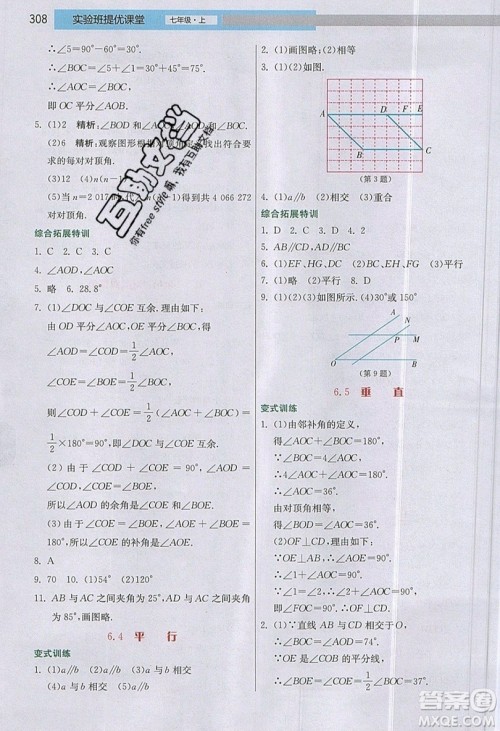 308 实验班提优课堂 七年级·上
∴∠5=90°-60°=30°.
∴∠BOC=∠AOC=60°.
∴∠BOC=∠AOC.
即OC平分∠AOB.
5. (1)2 精析:∠BOD和∠AOC,∠BOC和∠AOD.
(2)6 精析:观察图形根据对顶角定义找出符合要求的每对对顶角.
(3)12 (4)n(n-1)
(5)当n=2 017时代入n(n-1)得到共4 066 272对对顶角.
综合拓展特训
1. C 2. C 3. C
4. ∠AOD,∠AOC,∠AOD
5. 略 6. 28.8°
7. (1)∠DOC与∠COE互余.理由如下:
由OD平分∠AOC,OE平分∠BOC,得
∠AOD=∠COD=1/2∠AOC,
∠BOE=∠COE=1/2∠BOC,
∠COD+∠COE=1/2(∠AOC+∠BOC)=
1/2×180°=90°,即∠DOC与∠COE互余.
(2)由∠AOD+∠COE=90°,∠AOD+∠BOE=90°,
所以∠AOD的余角有∠COE,∠BOE.
(3)由(2)得∠COE=∠BOE,∠AOE+∠BOE=180°,得∠AOE+∠COE=180°,
所以∠COE的补角是∠AOE.
8. A
9. 70 10. (1)54° (2)120°
11. AB与AC之间夹角为30°,AD与AC之间夹角为85°,画图略.
6.4 平行
变式训练
1. (1)a//b (2)a//b (3)a与b相交
(4)a与b相交 (5)a//b
2. (1)画图略 (2)平行
3. (1)(2)如图.
A D F E
B C
(第3题)
4. (1)a//b (2)相交 (3)重合
综合拓展特训
1. D 2. D 3. C 4. C
5. AB//CD,AD//BC
6. (1)EF,HG,DC (2)BC,EH,FG (3)平行
7. (1)略 (2)平行 8. C
9. (1)(2)(3)如图所示.(4)30°或150°
A N
P M
O B
(第9题)
6.5 垂直
变式训练
1. (1)由邻补角的定义,
得∠AOC+∠AOD=180°,
∴4∠AOC+∠AOC=180°.
∴∠AOC=36°.
由对顶角相等,
得∠BOD=∠AOC=36°.
(2)OF⊥CD.理由如下:
∵OE⊥AB,
∴∠AOE=90°.
∴∠AOF+∠EOF=90°.
∵∠AOC=∠EOF,
∴∠AOC+∠AOF=90°.
即∠FOC=90°.
∴OF⊥CD.
2. (1)∵直线AB与CD相交于点O,
∴∠BOC=∠AOD=74°.
∵OE是∠BOC的平分线,
∴∠BOE=1/2∠BOC=37°.
互助文档
你有free style嘛,我有互助文档
答案圈
MXQE.COM